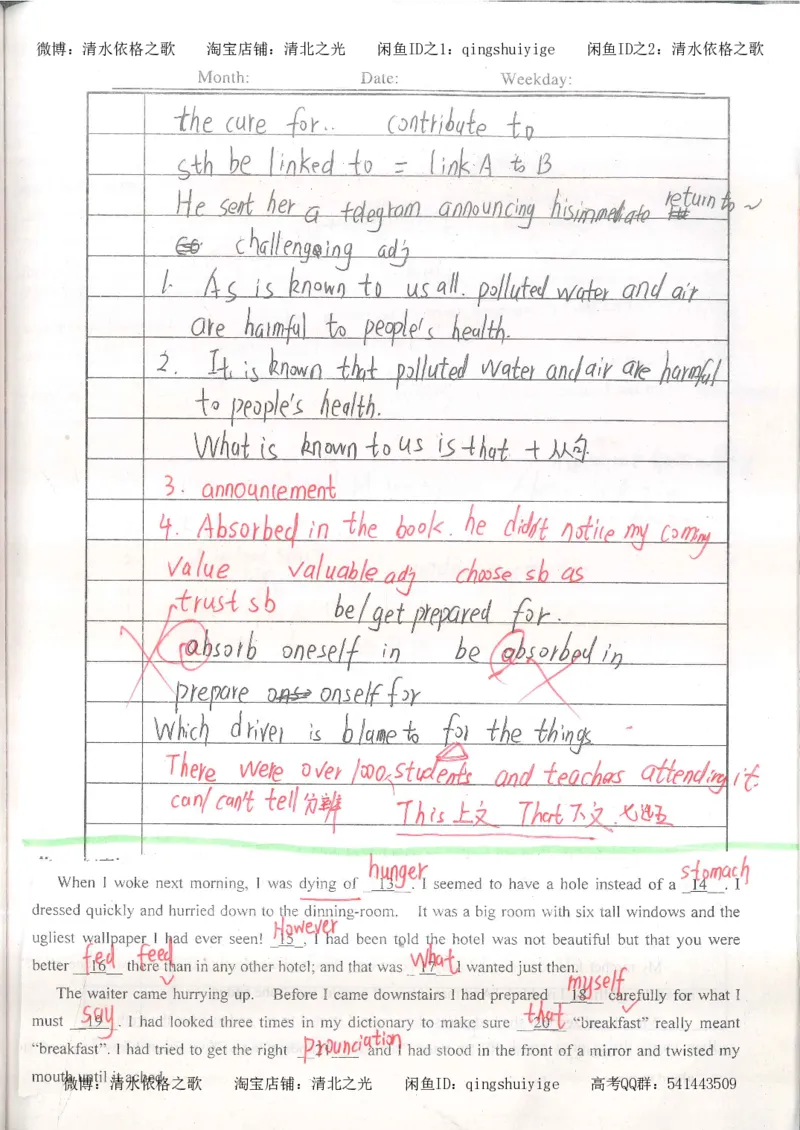 微博：清水依格之歌 淘宝店铺：清北之光 闲鱼ID之1：qingshuiyige 闲鱼ID之2：清水依格之歌
Month: Date: Weekday:
the cure for.. contribute to
sth be linked to = link A to B
He sent her a telegram announcing his immediate return to ~
challenging adj
1. As is known to us all. polluted water and air
are harmful to people's health.
2. It is known that polluted water and air are harmful
to people's health.
What is known to us is that + 从句.
3. announcement
4. Absorbed in the book. he didn't notice my coming
value valuable adj choose sb as
trust sb be/get prepared for.
absorb oneself in be absorbed in
prepare onself for
Which driver is blame to for the things
There were over 1000 students and teachers attending it.
can/can't tell 分辨 This 上文 That 下文 七选五
When I woke next morning, I was dying of 13 hunger. I seemed to have a hole instead of a 14 stomach. I
dressed quickly and hurried down to the dinning-room. It was a big room with six tall windows and the
ugliest wallpaper I had ever seen! 15 However, I had been told the hotel was not beautiful but that you were
better 16 fed feed there than in any other hotel; and that was 17 what I wanted just then.
The waiter came hurrying up. Before I came downstairs I had prepared 18 myself carefully for what I
must 19 say. I had looked three times in my dictionary to make sure 20 that “breakfast” really meant
“breakfast”. I had tried to get the right 21 pronunciation and I had stood in the front of a mirror and twisted my
mouth until it ached.
微博：清水依格之歌 淘宝店铺：清北之光 闲鱼ID：qingshuiyige 高考QQ群：541443509